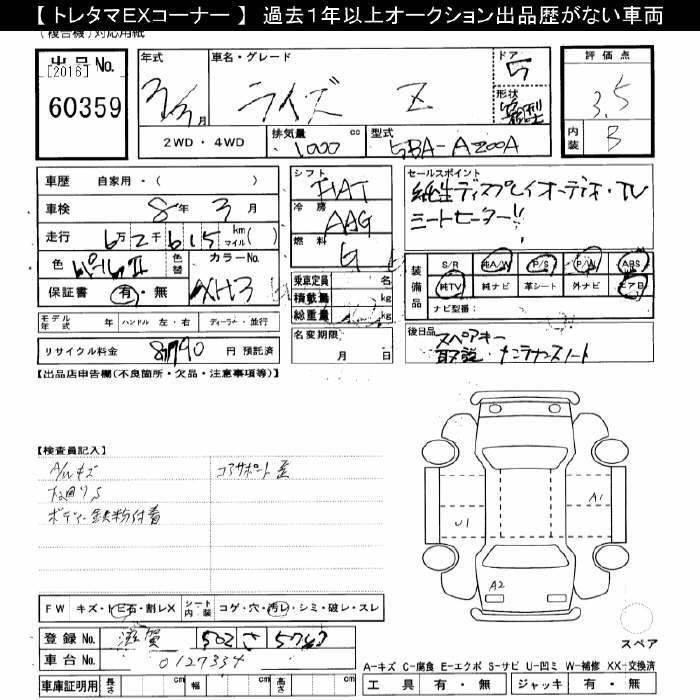 【 トレタマＥＸコーナー 】 過去１年以上オークション出品歴がない車両
(複合機) 対応用紙
出品No.
[2016]
60359
年式
3/3月
車名・グレード
ライズ Z
ドア
5
形状
箱型
2WD・4WD
排気量
1000 cc
型式
5BA-A200A
評価点
3.5
内装
B
車歴 自家用・( )
車検 8年 3月
走行 6万2千615 kmマイル( )
色
色替
カラーNo.
XH3
保証書 有・無
モデル年式 年 ハンドル 左・右 ディーラー・並行
リサイクル料金 8790 円 預託済
シフト
FIAT
冷房
AAC
燃料
G
乗車定員 名
積載量 kg
総重量 kg
名変期限
月 日
セールスポイント
純生ディスプレイオーディオ・TV
シートヒーター!!
装備品
S/R 純A/W P/S P/W ABS
純TV 純ナビ 革シート 外ナビ エアB
ナビ型番:
後日品
スペアキー
取説・メンテナンスノート
【出品店申告欄(不良箇所・欠品・注意事項等)】
【検査員記入】
A/Wキズ
コアサポート歪
下廻りS
ボディー鉄粉付着
A1
U1
A2
FW キズ・トビ石・割レX
シート内装 コゲ・穴・汚レ・シミ・破レ・スレ
登録No. 滋賀 502 さ
車台No. 0127334
スペア
A-キズ C-腐食 E-エクボ S-サビ U-凹ミ W-補修 XX-交換済
車庫証明用 長さ cm 幅 cm 高さ cm
工具 有・無 ジャッキ 有・無